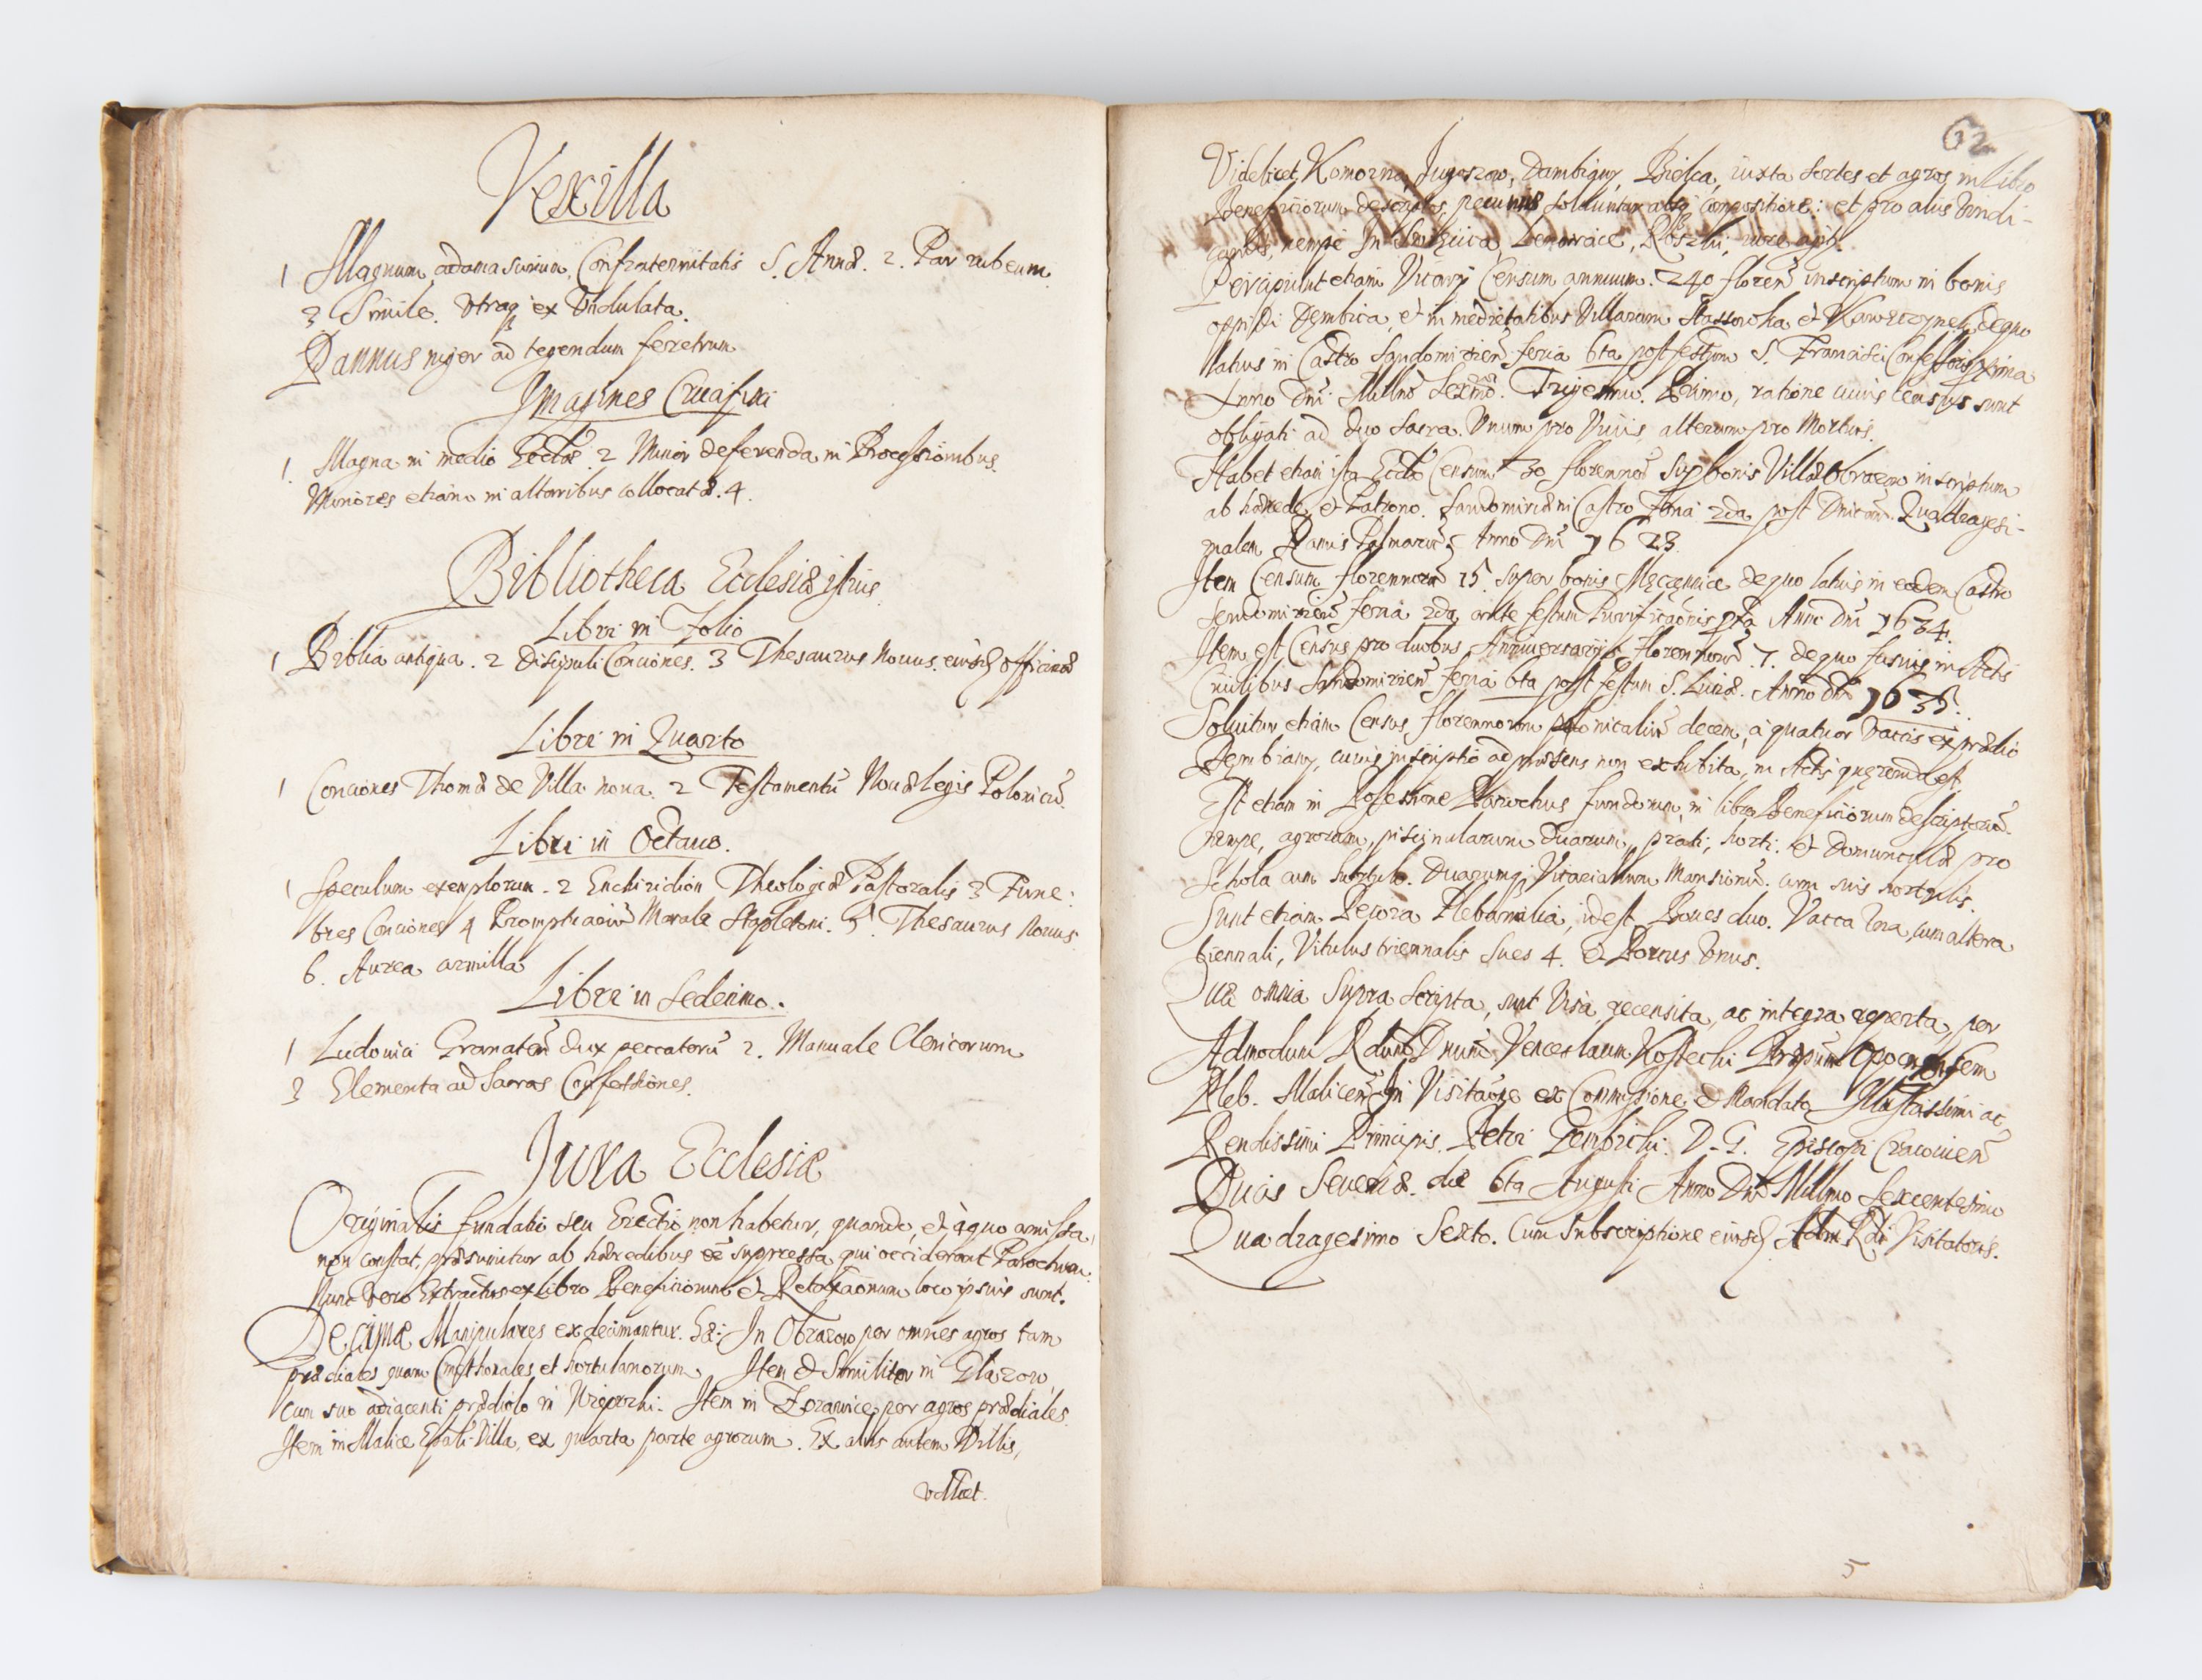 Vexilla
1 Magnum adamascinum, Confraternitatis S. Annæ. 2. Par rubeum.
3 Simile. Utraq ex Undulata.
Pannus niger ad tegendum feretrum
Imagines Crucifixi
1 Magna in medio Ecclæ 2 Minor deferenda in Processionibus.
Minores etiam in altaribus collocatæ. 4.
Bibliotheca Ecclesiæ istius
Libri in Folio
1 Biblia antiqua. 2 Discipuli Conciones. 3 Thesaurus Nouus. eiusd officinæ
Libri in Quarto
1 Conciones Thomæ de Villa noua. 2 Testamentū Nouæ legis Polonicū.
Libri in Octauo.
1 Speculum exemplorum. 2 Enchiridion Theologiæ Pastoralis 3 Fune:
bres Conciones 4 Promptuariū Morale Stapletoni. 5. Thesaurus Nouus
6. Aurea armilla
Libri in Sedecimo.
1 Ludouici Granateñ dux peccatorū 2. Manuale Clericorum
3 Elementa ad Sacras Confessiones.
Jura Ecclesiæ
Originalis fundatio seu Erectio non habetur, quando, et à quo amissa,
non constat, præsumitur ab hæredibus eē suppressa qui occiderant Parochum.
Nunc vero Extractus ex Libro Beneficiorum et Retaxaonum loco ipsius sunt.
Decimæ Manipulares exdecimantur. In Obrazow per omnes agros tam
prædiales quam Cmethonales, et hortulanorum. Item et Similiter in Glazow,
cum suo adiacenti prædiolo in. Item in Zorawice per agros prædiales.
Item in Malice Epali Villa, ex quarta parte agrorum. Ex aliis autem Villis,
Videlicet, Komorna, Jugoszow, Dambiguy, Bielca, iuxta sortes et agros in Libro
Beneficiorum descriptos, pecuniis soluuntur absq compositione: et pro aliis vendi-
nempe In
Percipiunt etiam Vicarij Censum annuum. 240 floreñ inscriptum in bonis
oppidi Dembica, et in medietatibus Villarum Stassowka et de quo
latius in Castro Sandomirien feria 6ta post festum S. Francisci Confessoris pxima
Anno Dni Millmo Sexmo. Trigesimo. Primo, ratione cuius census sunt
obligati ad duo Sacra. Unum pro Viuis, alterum pro Mortuis.
Habet etiam ista Eccla Censum 30 florenorū Sup bonis Villæ Obrazow inscriptum
ab hærede, et Patrono. Sandomiriæ in Castro Feria 2da post Dnicam Quadragesi-
malem Ramis Palmarum Anno Dni 1623.
Item Censum florennorū 15. super bonis de quo latius in eodem Castro
Sendomirien feria 2da ante festum Purificaonis Anno Dni 1634.
Item est Census pro duobus Anniuersarijs florennorū. 7. de quo fusius in Actis
Ciuilibus Sandomirien feria 6ta post festum S. Luciæ. Anno Dni 1635.
Soluitur etiam Census florennorum decem, à quatuor vaccis ex prædio
Dembiany, cuius inscriptio ad præsens non exhibita, in Actis quærenda est.
Est etiam in Possessione Parochus fundorum, in libro Beneficiorum descriptorū.
nempe, agrorum, piscinularum duarum, prati, horti. et Domunculæ pro
Schola cum hortulo. Duarumq Vicarialium Mansionū. cum suis hortulis.
Sunt etiam Pecora Plebanalia, id est Boues duo. Vacca Una, cum altera
biennali, Vitulus triennalis Sues 4. et Porcus Unus.
Quæ omnia Supra Scripta, sunt Visa, recensita, ac integra reperta, per
Admodum Rdum Dnum Venceslaum Præpūm Opocnensem
Pleb. Maliceñ In Visitaone ex Commissione et Mandato Illustrissimi ac
Rendissimi Principis. Petri Gembicki. D. G. Episcopi Cracouieñ
Ducis Seueriæ. die 6ta Augusti Anno Dni Millmo Sexcentesimo
Quadragesimo Sexto. Cum Subscriptione eiusd Adm Rdi Visitatoris.
5